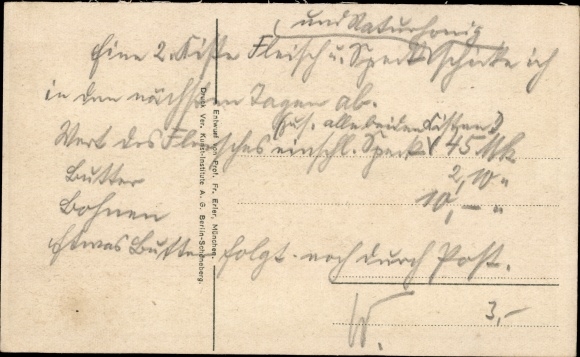 und Naturhonig
Eine 2. Kiste Fleisch u. Speck schicke ich
in den nächsten Tagen ab.
(zus. alle beiden Kisten)
Wert des Fleisches einschl. Speck 45 Mk
Butter 2,10 "
Bohnen 10,— "
Etwas Butter folgt noch durch Post.
W. 3,-
Entwurf von Prof. Fr. Erler, München.
Druck Ver. Kunst-Institute A. G. Berlin-Schöneberg.